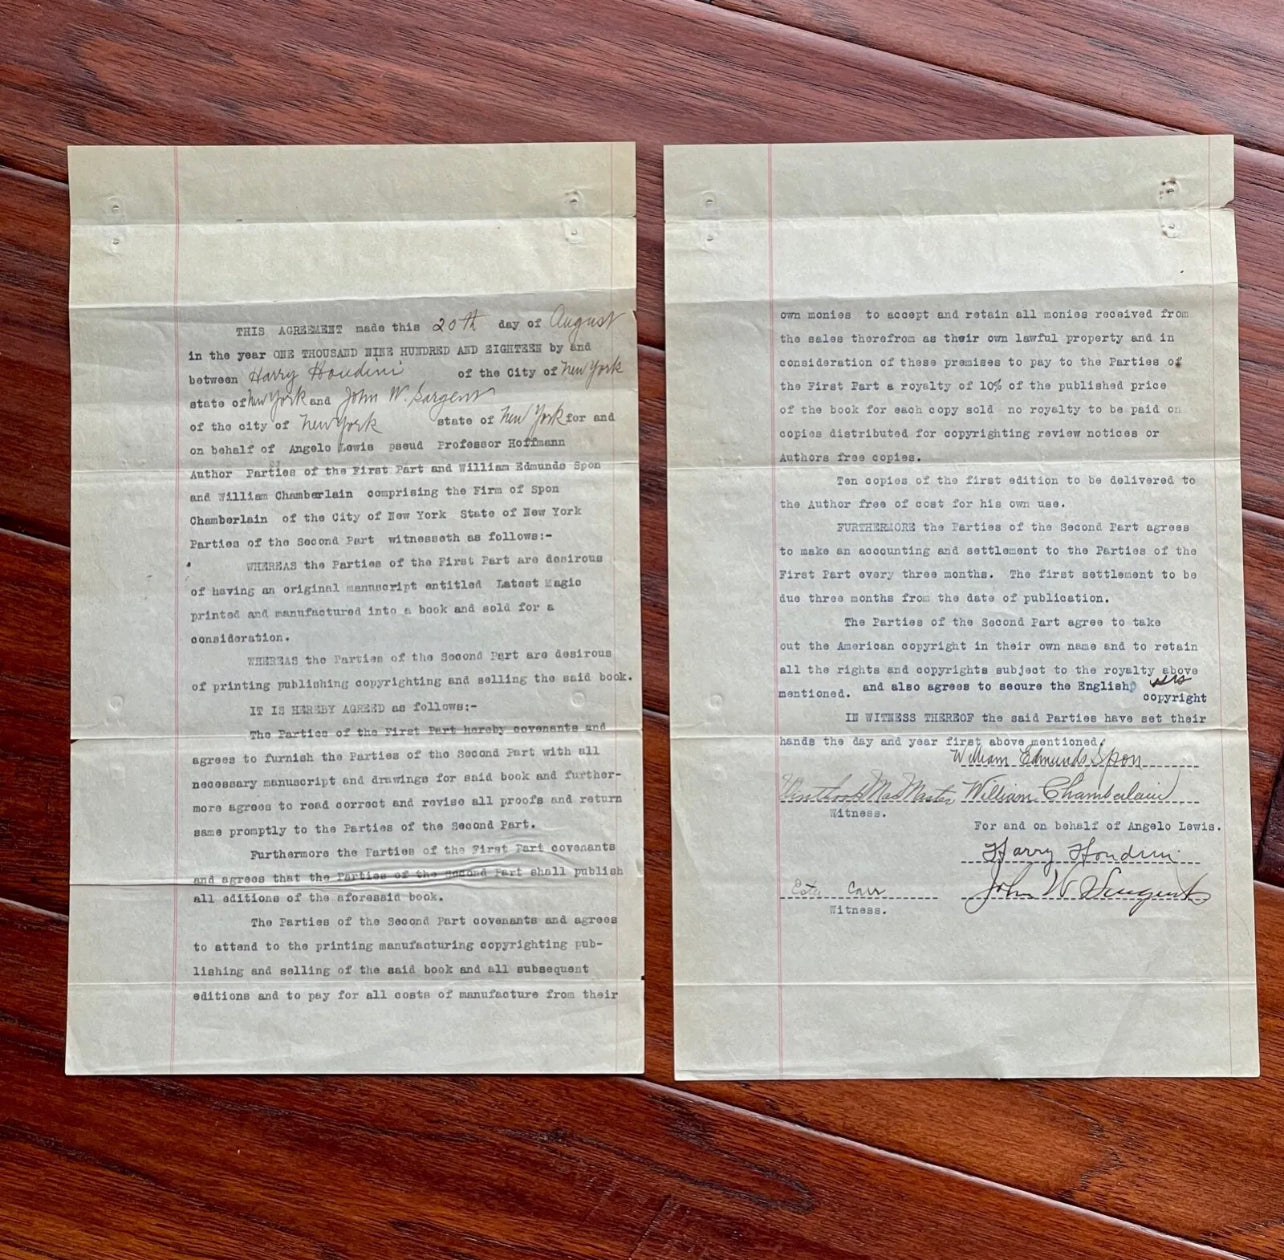 THIS AGREEMENT made this 20th day of August
in the year ONE THOUSAND NINE HUNDRED AND EIGHTEEN by and
between Harry Houdini of the City of New York
state of New York and John W. Sargent
of the city of New York state of New York for and
on behalf of Angelo Lewis pseud Professor Hoffmann
Author Parties of the First Part and William Edmunds Spon
and William Chamberlain comprising the Firm of Spon
Chamberlain of the City of New York State of New York
Parties of the Second Part witnesseth as follows:-
WHEREAS the Parties of the First Part are desirous
of having an original manuscript entitled Latest Magic
printed and manufactured into a book and sold for a
consideration.
WHEREAS the Parties of the Second Part are desirous
of printing publishing copyrighting and selling the said book.
IT IS HEREBY AGREED as follows:-
The Parties of the First Part hereby covenants and
agrees to furnish the Parties of the Second Part with all
necessary manuscript and drawings for said book and further-
more agrees to read correct and revise all proofs and return
same promptly to the Parties of the Second Part.
Furthermore the Parties of the First Part covenants
and agrees that the Parties of the Second Part shall publish
all editions of the aforesaid book.
The Parties of the Second Part covenants and agrees
to attend to the printing manufacturing copyrighting pub-
lishing and selling of the said book and all subsequent
editions and to pay for all costs of manufacture from their
own monies to accept and retain all monies received from
the sales therefrom as their own lawful property and in
consideration of these premises to pay to the Parties of
the First Part a royalty of 10% of the published price
of the book for each copy sold no royalty to be paid on
copies distributed for copyrighting review notices or
Authors free copies.
Ten copies of the first edition to be delivered to
the Author free of cost for his own use.
FURTHERMORE the Parties of the Second Part agrees
to make an accounting and settlement to the Parties of the
First Part every three months. The first settlement to be
due three months from the date of publication.
The Parties of the Second Part agree to take
out the American copyright in their own name and to retain
all the rights and copyrights subject to the royalty above
mentioned. and also agrees to secure the English copyright
IN WITNESS THEREOF the said Parties have set their
hands the day and year first above mentioned.
William Edmunds Spon
William Chamberlain
Witness.
For and on behalf of Angelo Lewis.
Harry Houdini
Carr John W Sargent
Witness.